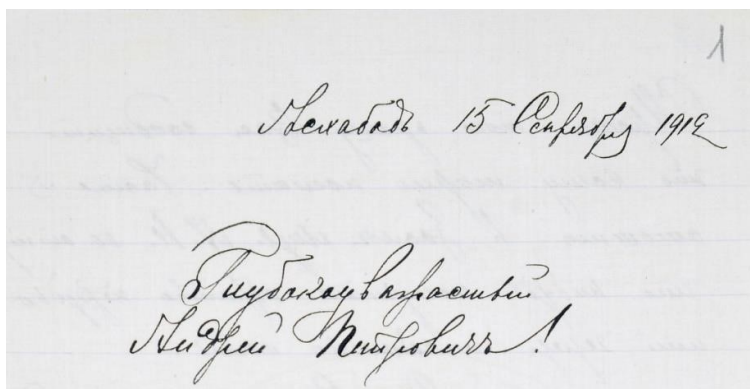 1
Асхабадъ 15 Сентября 1912
Глубокоуважаемый
Андрей Петровичъ!